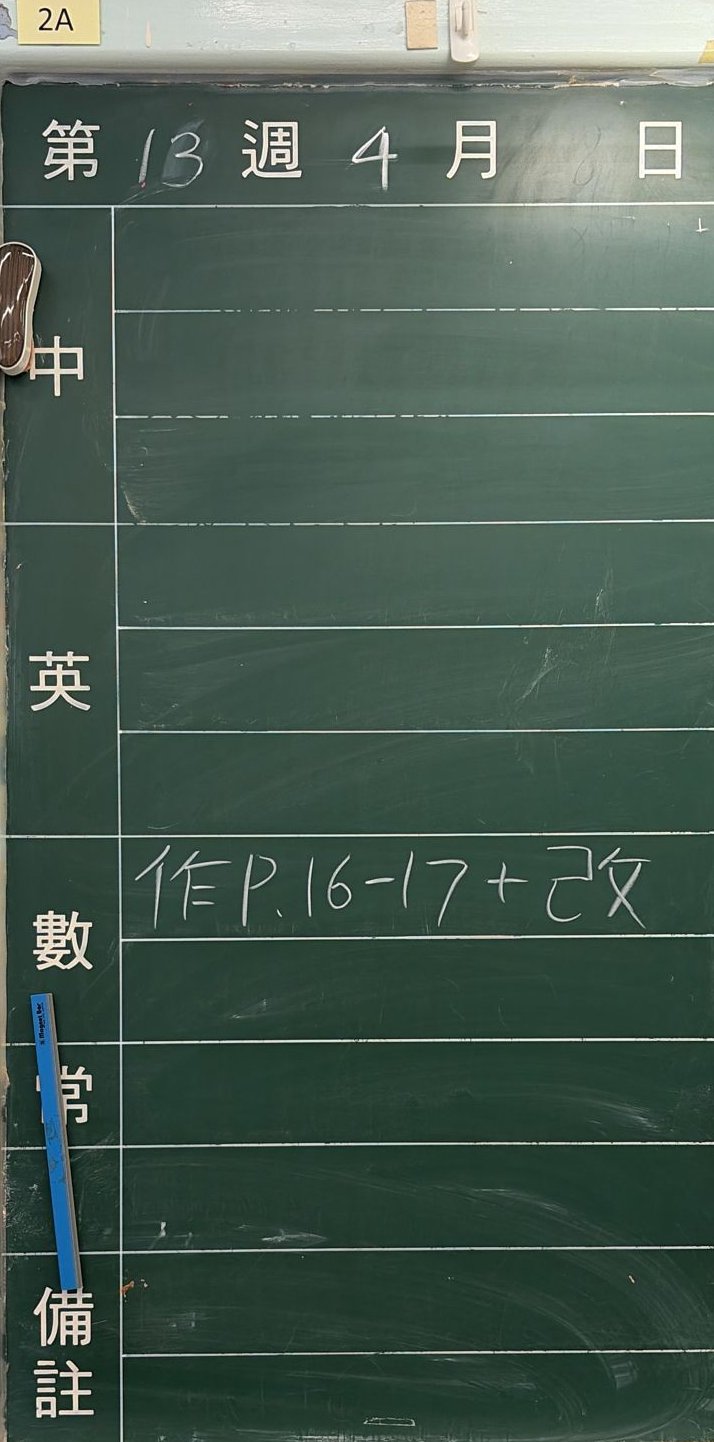 2A
第 13 週 4 月 日
中
英
數
作P.16-17+改
Magnet Bar
常
備註